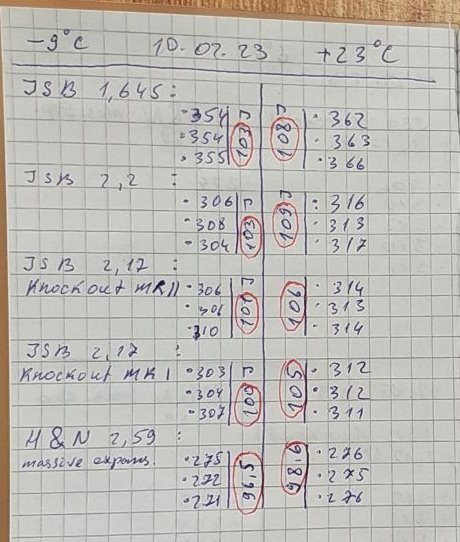 -9°C 10.02.23 +23°C
JSB 1,645 :
·354 ·362
·354 103 J 108 J ·363
·355 ·366
JSB 2,2 :
·306 :316
·308 103 J 109 J ·313
·304 ·317
JSB 2,17 :
Knockout MKII ·306 ·314
·306 101 J 106 ·313
·310 ·314
JSB 2,17 :
Knockout MK I ·303 ·312
·304 100 J 105 ·312
·307 ·311
H & N 2,59 :
massive expans. ·275 ·276
·272 96.5 98.6 ·275
·271 ·276